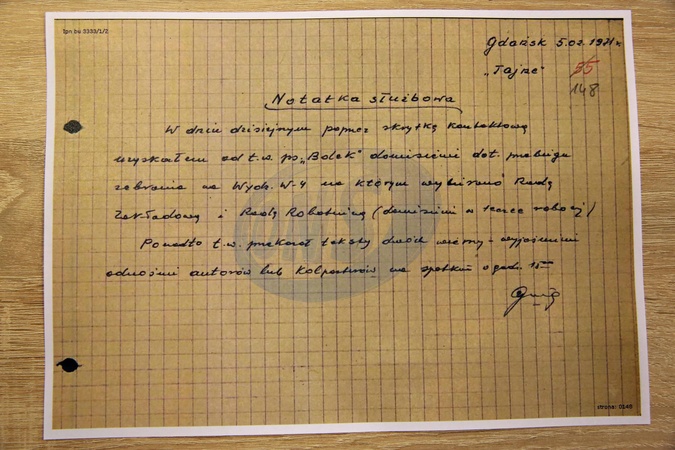 Ipn bu 3333/1/2
Gdańsk 5.02.1971 r
„Tajne" 55
148
Notatka służbowa
W dniu dzisiejszym poprzez skrytkę kontaktową
uzyskałem od t.w. ps. „Bolek" doniesienie dot. przebiegu
zebrania na Wydz. W-4 na którym wybierano Radę
Zakładową i Radę Robotniczą (doniesienie w teczce roboczej)
Ponadto t.w. przekazał teksty dwóch wierszy - wyjaśnienie
odnośnie autorów lub kolporterów na spotkaniu o godz.
strona: 0148